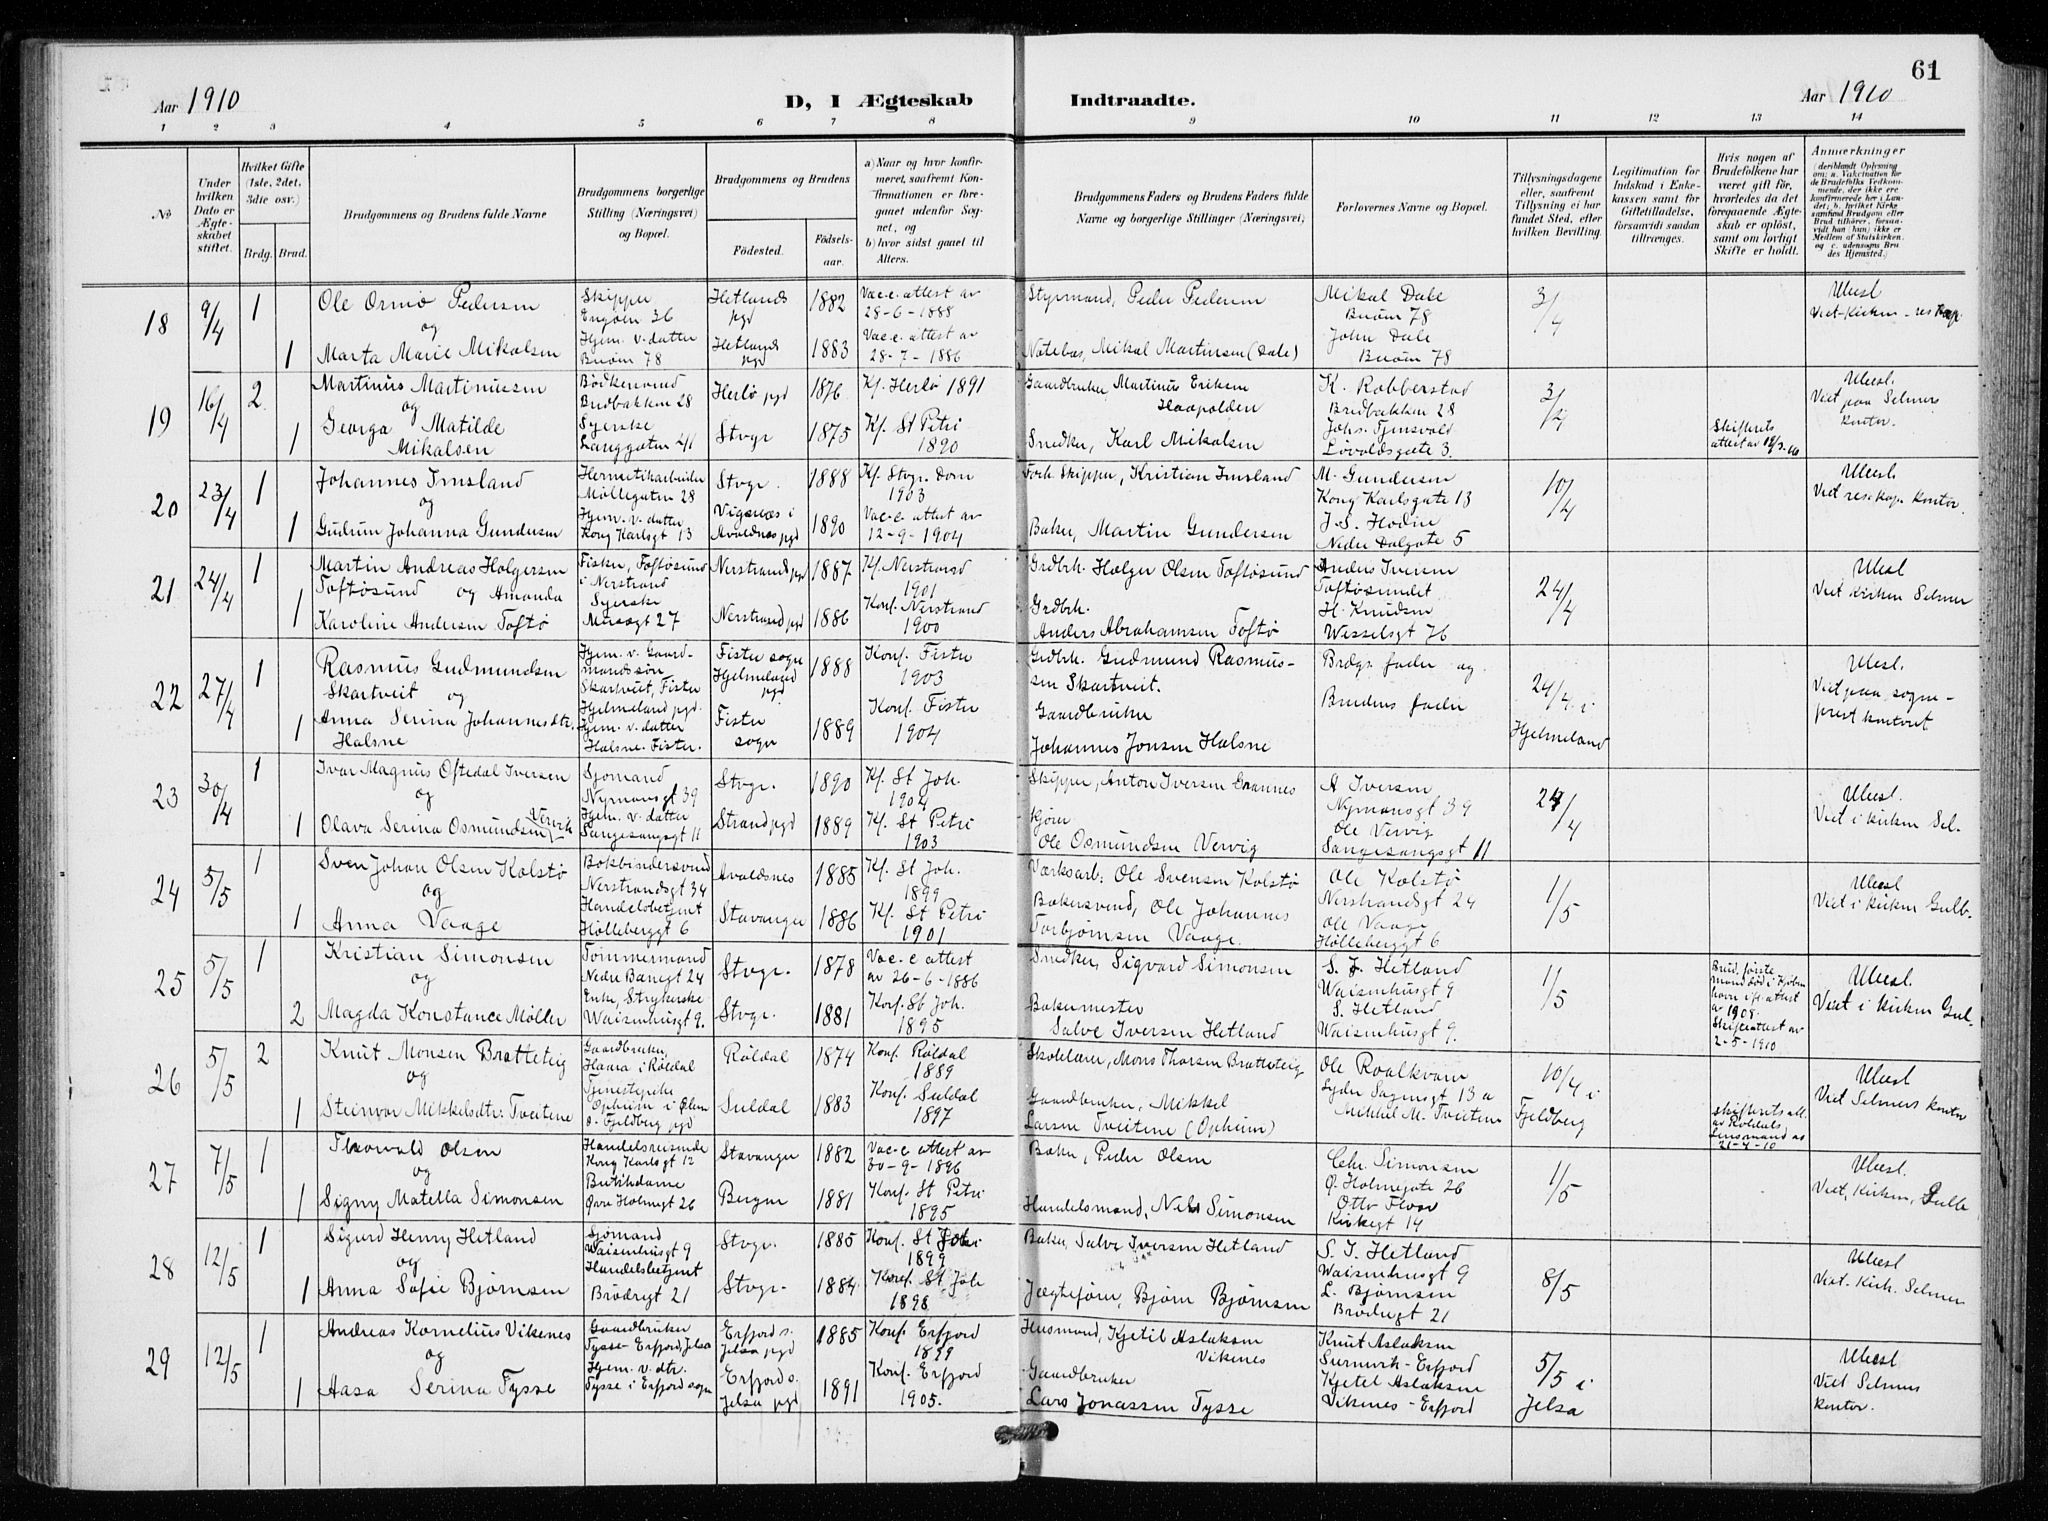 61
Aar 1910
D, I Ægteskab Indtraadte.
Aar 1910
1 2 3 4 5 6 7 8 9 10 11 12 13 14
No
Under hvilken Dato er Ægteskabet stiftet.
Hvilket Gifte (1ste, 2det, 3die osv.)
Brdg. Brud.
Brudgommens og Brudens fulde Navne
Brudgommens borgerlige Stilling (Næringsvei) og Bopæl.
Brudgommens og Brudens
Fødested.
Fødselsaar.
a) Naar og hvor konfirmeret, saafremt Konfirmationen er foregaaet udenfor Sognet, og
b) hvor sidst gaaet til Alters.
Brudgommens Faders og Brudens Faders fulde Navne og borgerlige Stillinger (Næringsvei)
Forlovernes Navne og Bopæl.
Tillysningsdagene eller, saafremt Tillysning ei har fundet Sted, efter hvilken Bevilling.
Legitimation for Indskud i Enkekassen samt for Giftetilladelse, forsaavidt saadan tillrænges.
Hvis nogen af Brudefolkene har været gift før, hvorledes da det foregaaende Ægteskab er opløst, samt om lovligt Skifte er holdt.
Anmærkninger
18 9/4 1
Ole Ormø Pedersen
og
1 Marta Marie Mikalsen
Skipper
Engøen 36
Hjem. v. datter
Buøen 78
Hetlands pgd 1882
Hetlands pgd 1883
Vac-c. attest av
28-6-1888
Vac-c. attest av
28-7-1886
Styrmand, Peder Pedersen
Notebas, Mikal Martinsen (Dale)
Mikal Dale
Buøen 78
John Dale
Buøen 78
3/4
Viet-Kirken - res kap.
19 16/4 2
Martinus Martinussen
og
1 Georga Matilde
Mikalsen
Bødkersvend
Brudbakken 28
Syerske
Langgaten 41
Herlø pgd 1876
Stvgr 1875
Kf. Herlø 1891
Kf. St Petri
1890
Gaardbruker Martinus Eriksen
Snedker, Karl Mikalsen
K. Robberstad
Brudbakken 28
Løvoldsgate 3.
3/4
Skifterets
Viet paa Selmers
kontor.
20 23/4 1
Johannes Imsland
og
1 Gudrun Johanna Gundersen
Hermetikarbeider
Møllegaten 28
Hjem. v. datter
Kong Karlsgt 13
Stvgr. 1888
Vigsnæs i
Avaldsnes pgd 1890
Kf. Stvgr. Dom
1903
Vac-c. attest av
12-9-1904
Forh. Skipper, Kristian Imsland
Baker, Martin Gundersen
M. Gundersen
Kong Karlsgate 13
J. S. Hodin
Nedre Dalgate 5
10/4
Viet res. kap. kontor.
21 24/4 1
Martin Andreas Holgersen
Toftøsund og Amanda
1 Karoline Andersen Toftø
Fisker, Toftøsund
i Nerstrand
Syerske
Nerstrand pgd 1887
Nerstrand pgd 1886
Kf. Nerstrand
1901
Konf. Nerstrand
1900
Grdbrk. Holger Olsen Toftøsund
Grdbrk.
Anders Abrahamsen Toftø
Anders Iversen
Toftøsundet
H. Knudsen
Wesselsgt 76
24/4
Viet Kirken Selmer
22 27/4 1
Rasmus Gudmundsen
Skartveit og
1 Anna Serina Johannesdtr.
Halsne
Hjem. v. Gaardmandssøn
Skartveit, Fister
Hjelmeland pgd.
Hjem. v. datter
Halsne. Fister.
Fister sogn
Hjelmeland
pgd 1888
Fister
sogn 1889
Konf. Fister
1903
Konf. Fister
1904
Grdbrk. Gudmund Rasmussen Skartveit.
Gaardbruker
Johannes Jonsen Halsne
Brdgs. fader og
Brudens fader
24/4 i
Hjelmeland
Viet paa sogneprest kontoret
23 30/4 1
Ivar Magnus Oftedal Iversen
og
1 Olava Serina Osmundsen Vervik
Sjømand
Nymansgt 39
Hjem. v. datter
Sangesangsgt 11
Stvgr. 1890
Strand pgd 1889
Kf. St Joh.
1904
Kf. St Petri
1903
Skipper, Anton Iversen
Ole Osmundsen Vervig
A Iversen
Nymansgt 39
Ole Vervig
Sangesangsgt 11
24/4
Viet i kirken Sel-
24 5/5 1
Sven Johan Olsen Kolstø
og
1 Anna Vaage
Bokbindersvend
Nerstrandsgt 34
Handelsbetjent
Hølleberggt 6
Avaldsnes 1885
Stavanger 1886
Kf. St Joh.
1899
Kf. St Petri
1901
Værksarb: Ole Svensen Kolstø
Bakersvend, Ole Johannes
Torbjørnsen Vaage.
Ole Kolstø
Nerstrandsgt 24
Ole Vaage
Hølleberggt 6
1/5
Viet i kirken Gulb-
25 5/5 1
Kristian Simonsen
og
2 Magda Konstance Møller
Tømmermand
Nedre Banegt 24
Enke, Strykerske
Waisenhusgt 9.
Stvgr. 1878
Stvgr. 1881
Vac-c attest
av 26-6-1886
Konf. St Joh.
1895
Snedker, Sigvard Simonsen
Bakermester
Salve Iversen Hetland
S. J. Hetland
Waisenhusgt 9
S. Hetland
Waisenhusgt 9.
1/5
av 1908.
Skifteattest av
2-5-1910
Viet i kirken Gul-
26 5/5 2
Knut Monsen Bratteteig
og
1 Steinvor Mikkelsdtr: Tveitene
Gaardbruker,
Haara i Røldal
Tjenestepike
Opheim i Ølen
o. Fjeldberg pgd
Røldal 1874
Suldal 1883
Konf. Røldal
1889
Konf. Suldal
1897
Skolelærer, Mons Thorsen Bratteteig
Gaardbruker, Mikkel
Larsen Tveitene (Opheim)
Ole Roalkvam
Lyder Sagensgt 13 a
Mikkel M. Tveitene
10/4 i
Fjeldberg
Skifterets att.
av Røldals
Lensmand av
21-4-10
Viet Selmers kontor
27 7/5 1
Thorvald Olsen
og
1 Signy Matella Simonsen
Handelsreisende
Kong Karlsgt 12
Butikdame
Øvre Holmegt 26
Stavanger 1882
Bergen 1881
Vac-c attest av
30-9-1896
Konf. St Petri
1895
Baker, Peder Olsen
Handelsmand, Nils Simonsen
Chr. Simonsen
Ø. Holmegate 26
Otto Floor
Kirkegt 14
1/5
Viet, Kirken,
28 12/5 1
Sigurd Henry Hetland
og
1 Anna Sofie Bjørnsen
Sjømand
Waisenhusgt 9
Handelsbetjent
Brødregt 21
Stvgr. 1885
Stvgr. 1884
Konf. St
1899
Konf. St. Joh
1898
Baker, Salve Iversen Hetland
Jægtefører, Bjørn Bjørnsen
S. I. Hetland
Waisenhusgt 9
L. Bjørnsen
Brødregt 21
8/5
Viet. Kirk. Selmer
29 12/5 1
Andreas Kornelius Vikenes
og
1 Aasa Serina Tysse
Gaardbruker
Tysse-Erfjord, Jelsa
Hjem. v. dtr.
Tysse i Erfjord sogn
Erfjord s.
Jelsa pgd 1885
Erfjord s.
Jelsa pgd 1891
Konf. Erfjord
1899
Konf. Erfjord
1905.
Husmand, Kjetil Aslaksen
Vikenes
Gaardbruker
Lars Jonassen Tysse
Knut Aslaksen
Erfjord
Kjetel Aslaksen
Vikenes - Erfjord
5/5 i
Jelsa
Viet Selmers
kontor.